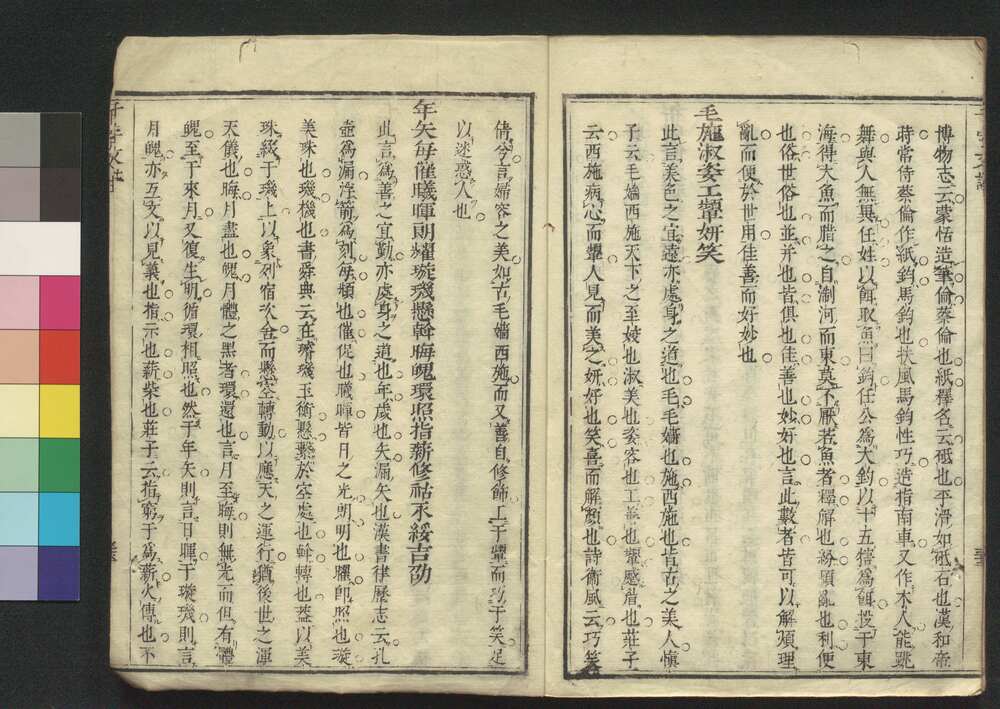 博物志云蒙恬造筆倫蔡倫也紙釋名云砥也平滑如砥石也漢和帝
時常侍蔡倫作紙鈞馬鈞也扶風馬鈞性巧造指南車又作木人能跳
舞與人無異任姓以餌取魚曰釣任公為大鈞以十五犗為餌投于東
海得大魚而腊之自淛河而東莫不厭若魚者釋解也紛煩亂也利便
也俗世俗也並并也皆俱也佳善也妙好也言此數者皆可以解煩理
亂而便於世用佳善而好妙也
毛施淑姿工顰妍笑
此言美色之宜遠亦處身之道也毛毛嬙也施西施也皆古之美人慎
子云毛嬙西施天下之至姣也淑美也姿容也工善也顰蹙眉也莊子
云西施病心而顰人見而美之妍好也笑喜而解顏也詩衛風云巧笑
倩兮言婦容之美如古毛嬙西施而又善自修飾工于顰而巧于笑足
以迷惑人也
年矢每催曦暉朗耀璇璣懸斡晦魄環照指薪修祜永綏吉劭
此言為善之宜勤亦處身之道也年歲也矢漏矢也漢書律歷志云孔
壺為漏浮箭為刻每頻也催促也曦暉皆日之光朗明也耀即照也璇
美珠也璣機也書舜典云在璿璣玉衡懸繫於空處也斡轉也蓋以美
珠綴于璣上以象列宿次舍而懸空轉動以應天之運行猶後世之渾
天儀也晦月盡也魄月體之黑者環還也言月至晦則無光而但有體
魄至于來月又復生明循環相照也然于年矢則言日暉于璇璣則言
月魄亦互文以見義也指示也薪柴也莊子云指窮于為薪火傳也不